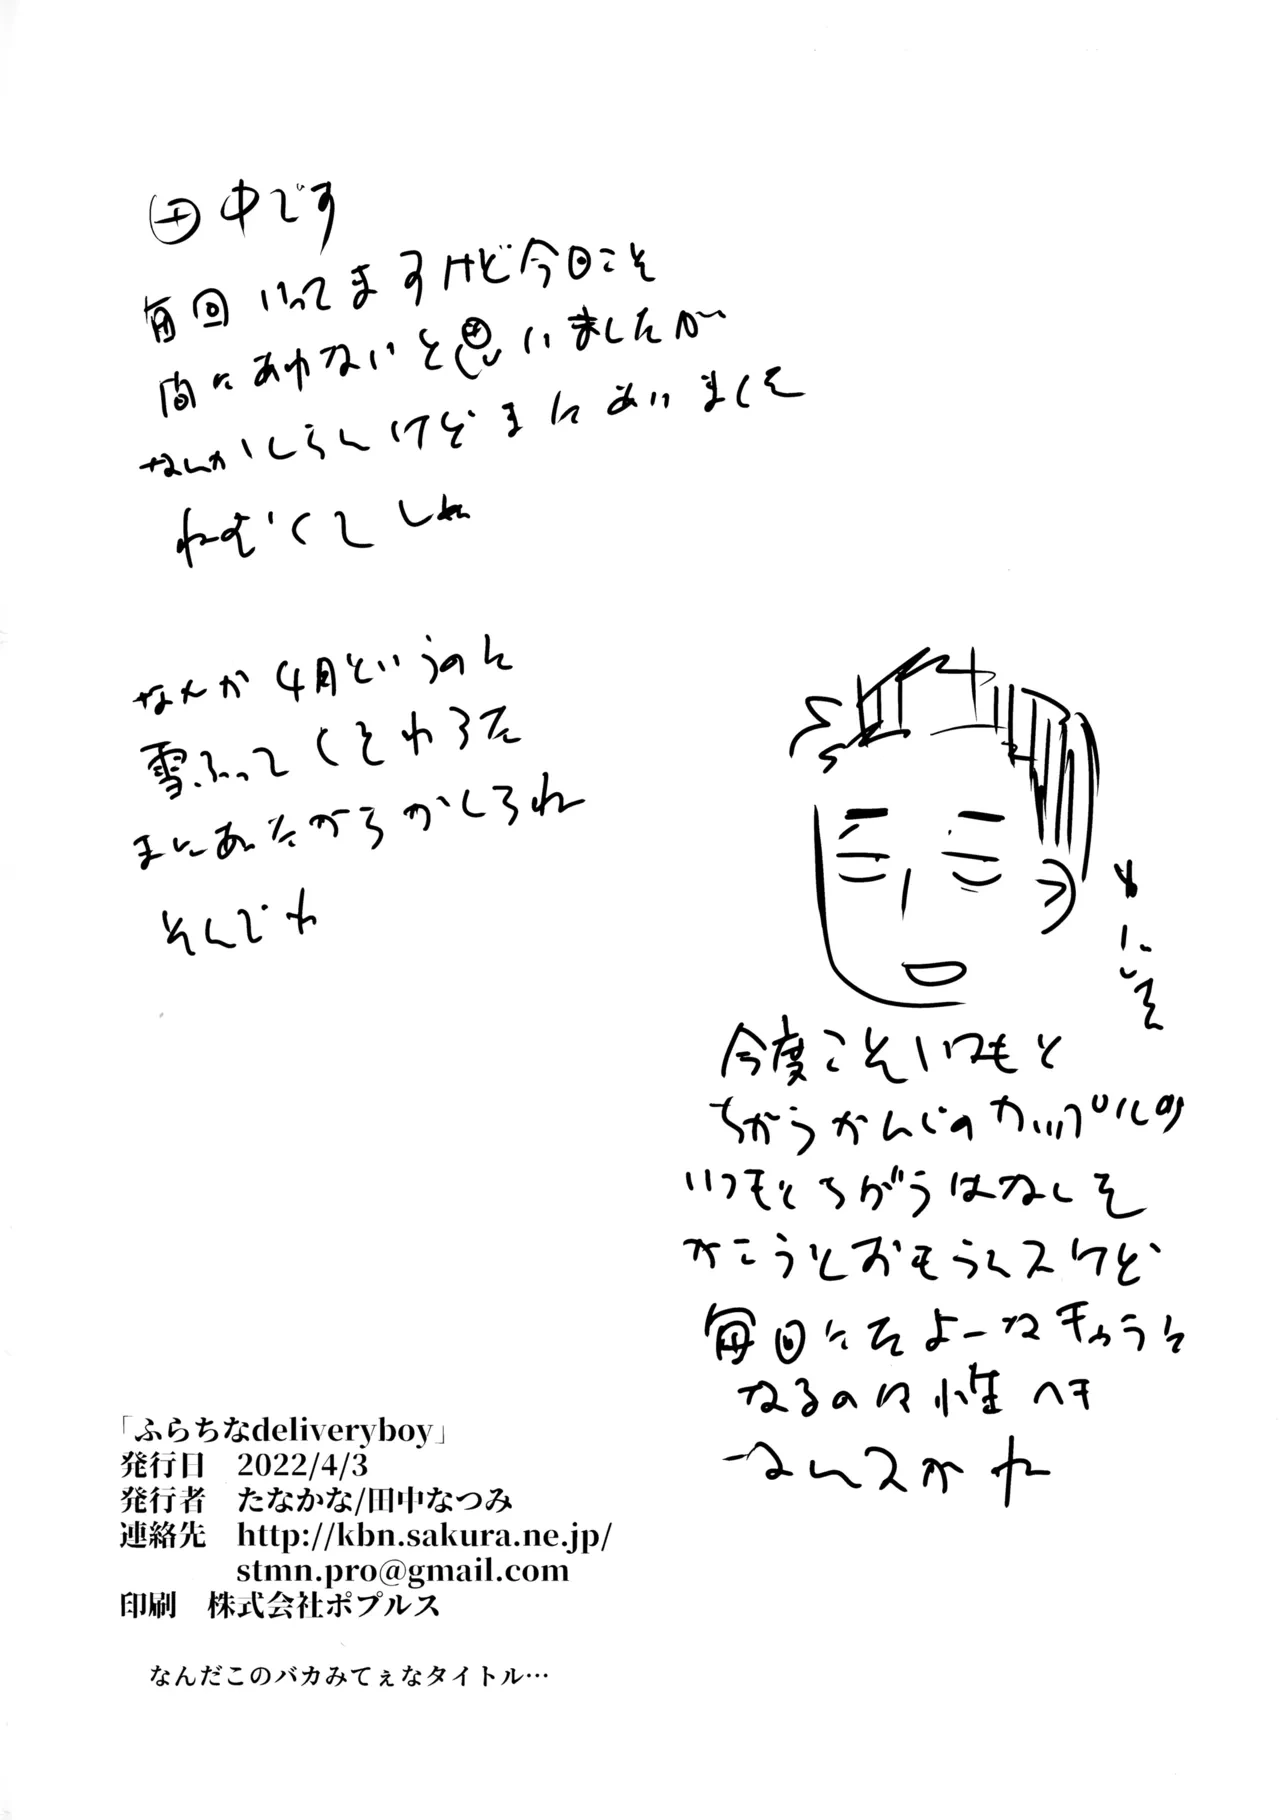 田中です
毎回いってますけど今回こそ
間にあわないと思いましたが
なんかしらんけどまにあいまくそ
ねむくてしぬ
なんか4月というのに
雪ふってくそわろた
まにあたがろかしろね
そんでわ
今度こそいつもと
ちがうかんじのカップルの
いつもとちがうはなしを
かこうとおもうんスけど
毎回にたよーなキャラに
なるのは性ヘキ
なんスかね
「ふらちなdeliveryboy」
発行日 2022/4/3
発行者 たなかな/田中なつみ
連絡先 http://kbn.sakura.ne.jp/
stmn.pro@gmail.com
印刷 株式会社ポプルス
なんだこのバカみてぇなタイトル…